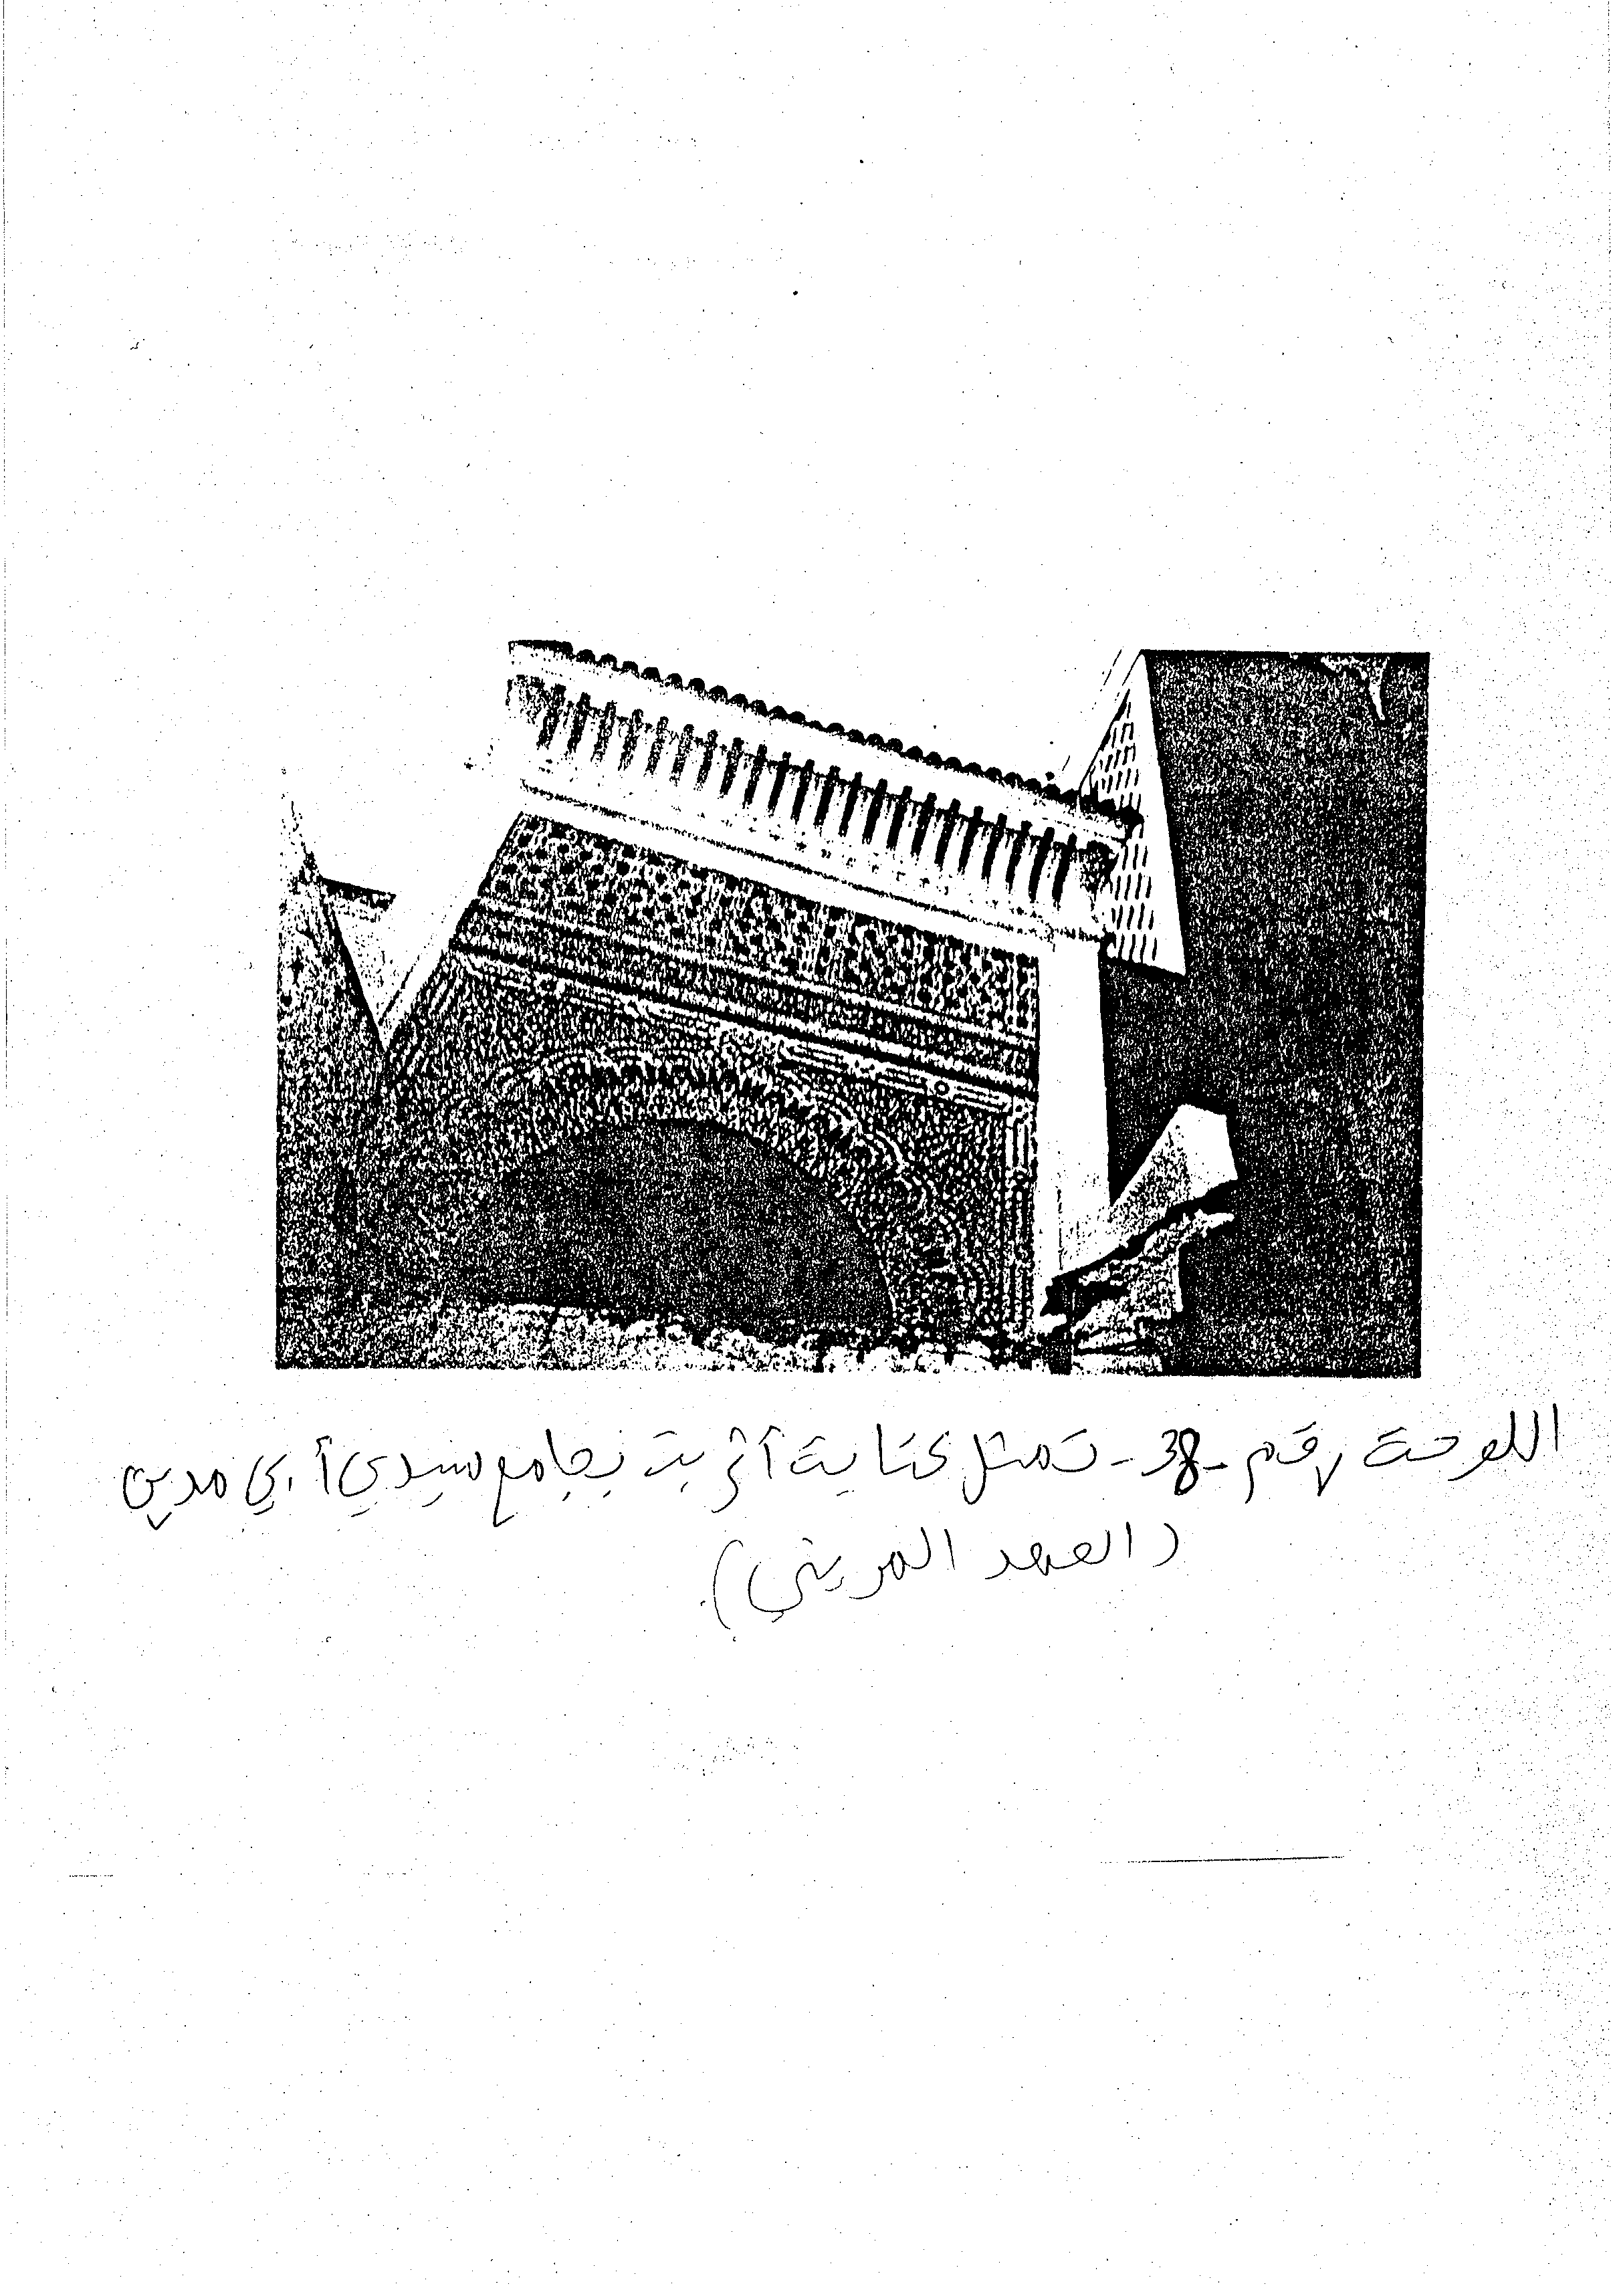 اللوحة رقم -38- تمثل كتابة أثرية بجامع سيدي أبي مدين
(العهد المريني).